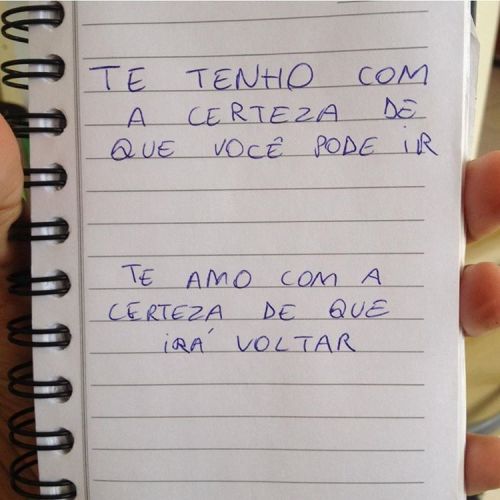 TE TENHO COM
A CERTEZA DE
QUE VOCÊ PODE IR
TE AMO COM A
CERTEZA DE QUE
IRÁ VOLTAR